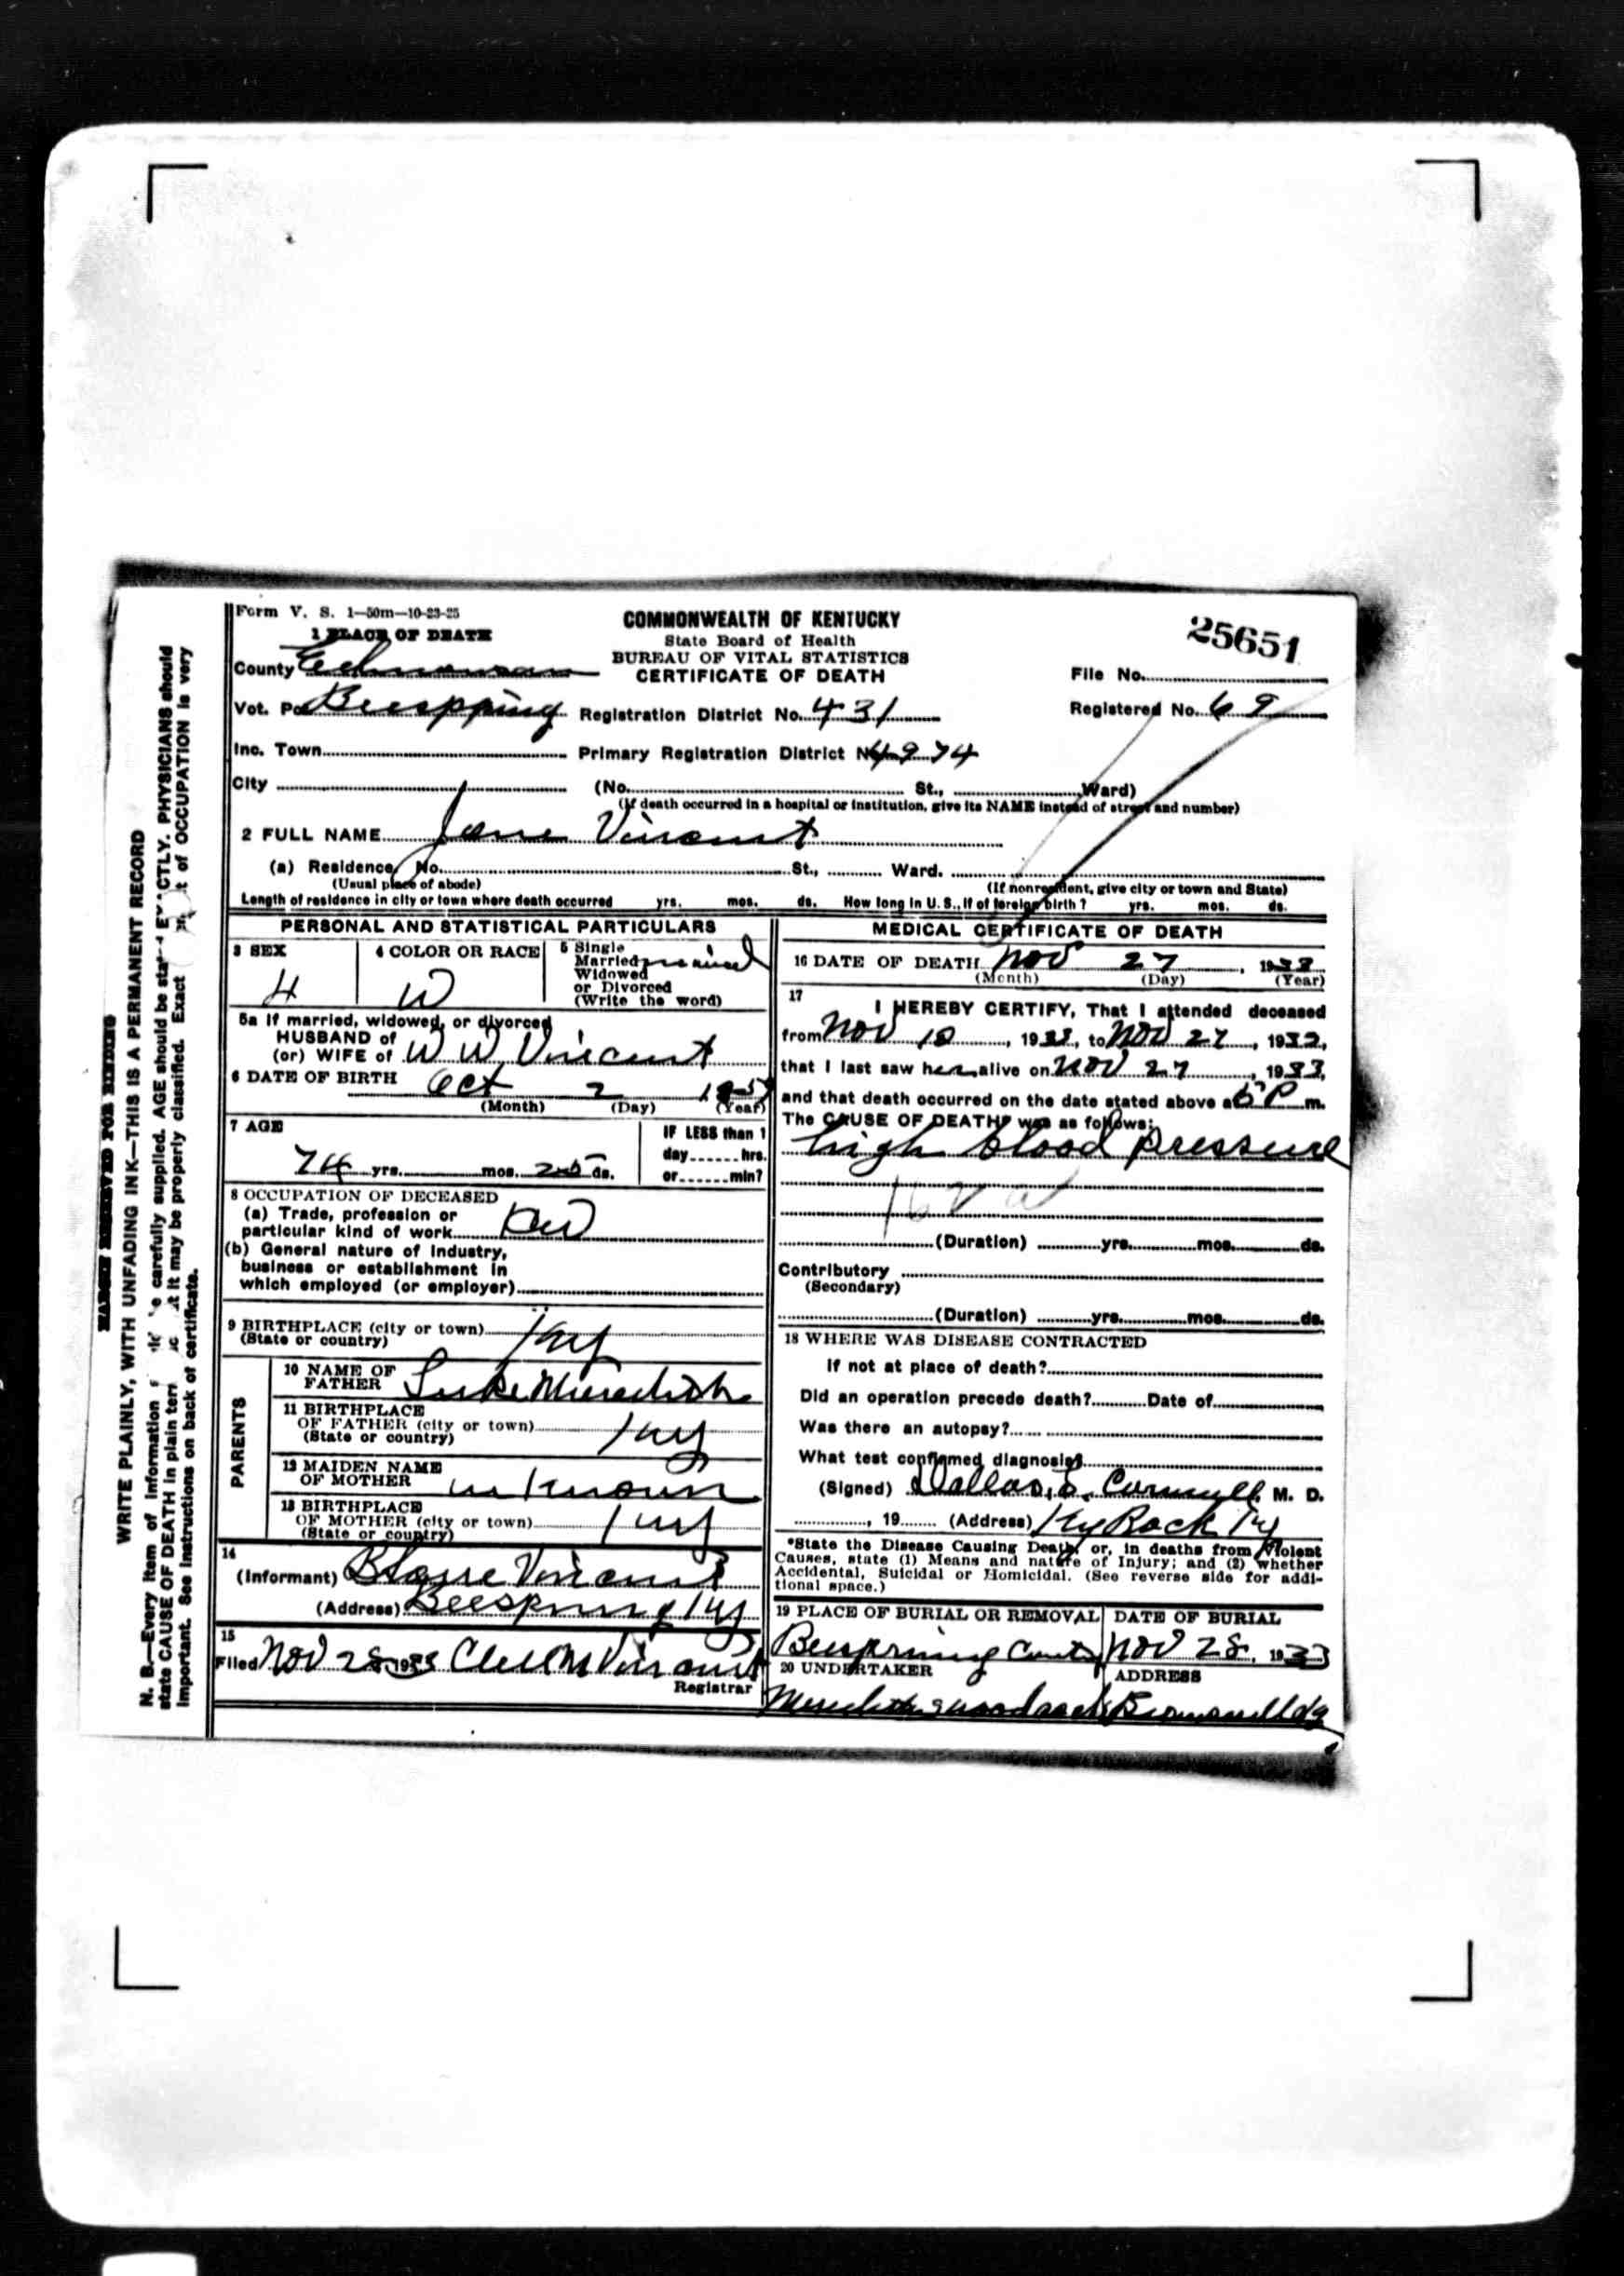 Form V. S. 1—50m—10-23-25
COMMONWEALTH OF KENTUCKY
State Board of Health
BUREAU OF VITAL STATISTICS
CERTIFICATE OF DEATH
25651
File No.
Registered No. 69
1 PLACE OF DEATH
County Edmonson
Vot. Pct Beespring Registration District No. 431
Inc. Town Primary Registration District No 4974
City (No. St., Ward)
(If death occurred in a hospital or institution, give its NAME instead of street and number)
2 FULL NAME Jane Vincent
(a) Residence No. St., Ward.
(Usual place of abode) (If nonresident, give city or town and State)
Length of residence in city or town where death occurred yrs. mos. ds. How long in U. S., if of foreign birth? yrs. mos. ds.
PERSONAL AND STATISTICAL PARTICULARS
3 SEX 4 COLOR OR RACE 5 Single
Married
Widowed
or Divorced
(Write the word)
W married
5a If married, widowed, or divorced
HUSBAND of
(or) WIFE of W W Vincent
6 DATE OF BIRTH Oct 2
(Month) (Day) (Year)
7 AGE IF LESS than 1
day hrs.
74 yrs. mos. 25 ds. or min?
8 OCCUPATION OF DECEASED
(a) Trade, profession or
particular kind of work
(b) General nature of Industry,
business or establishment in
which employed (or employer)
9 BIRTHPLACE (city or town) Ky
(State or country)
PARENTS
10 NAME OF
FATHER Luke Meredith
11 BIRTHPLACE
OF FATHER (city or town) Ky
(State or country)
12 MAIDEN NAME
OF MOTHER unknown
13 BIRTHPLACE
OF MOTHER (city or town) Ky
(State or country)
14
(Informant) Vincent
(Address) Beespring Ky
15
Filed Nov 28 1933 Vincent
Registrar
MEDICAL CERTIFICATE OF DEATH
16 DATE OF DEATH Nov 27, 1933
(Month) (Day) (Year)
17
I HEREBY CERTIFY, That I attended deceased
from Nov 18, 1933, to Nov 27, 1933,
that I last saw her alive on Nov 27, 1933,
and that death occurred on the date stated above at 5 P m.
The CAUSE OF DEATH* was as follows:
high blood pressure
(Duration) yrs. mos. ds.
Contributory
(Secondary)
(Duration) yrs. mos. ds.
18 WHERE WAS DISEASE CONTRACTED
If not at place of death?
Did an operation precede death? Date of
Was there an autopsy?
What test confirmed diagnosis?
(Signed) Dallas S. M. D.
, 19 (Address) Ky Rock Ky
*State the Disease Causing Death, or, in deaths from Violent
Causes, state (1) Means and nature of Injury; and (2) whether
Accidental, Suicidal or Homicidal. (See reverse side for addi-
tional space.)
19 PLACE OF BURIAL OR REMOVAL DATE OF BURIAL
Beespring Nov 28, 1933
20 UNDERTAKER ADDRESS
Meredith
MARGIN RESERVED FOR BINDING
WRITE PLAINLY, WITH UNFADING INK—THIS IS A PERMANENT RECORD
N. B.—Every item of information carefully supplied. AGE should be stated EXACTLY. PHYSICIANS should
state CAUSE OF DEATH in plain terms it may be properly classified. Exact of OCCUPATION is very
important. See instructions on back of certificate.